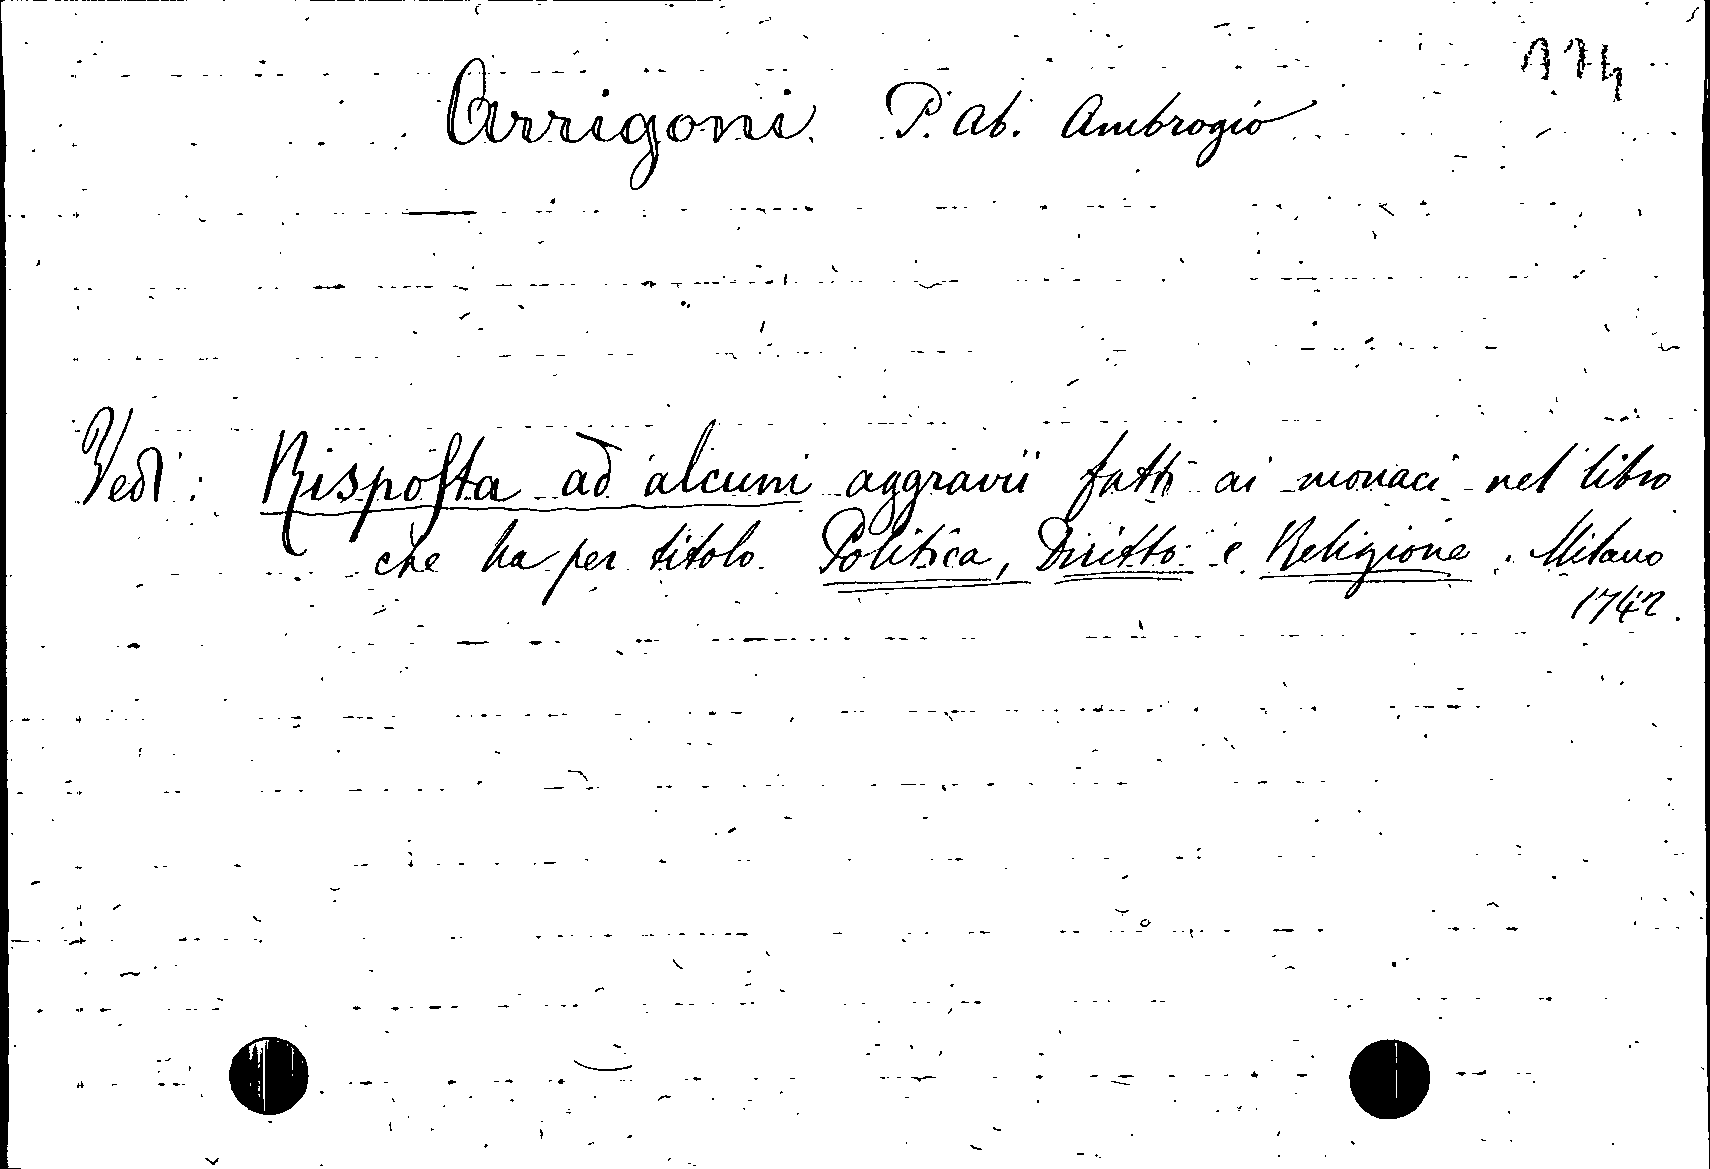 174
Arrigoni P. Ab. Ambrogio
Vedi: Risposta ad alcuni aggravii fatti ai monaci nel libro
che ha per titolo Politica, Diritto e Religione. Milano
1742.